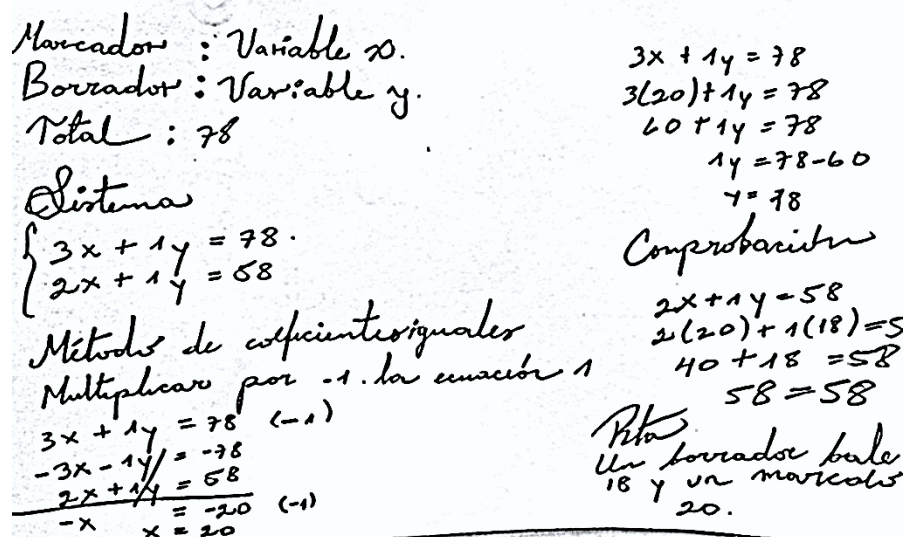 Marcador : Variable x.
Borrador : Variable y.
Total : 78
Sistema
3x + 1y = 78.
2x + 1y = 58
Método de coeficientes iguales
Multiplicar por -1. la ecuación 1
3x + 1y = 78 (-1)
-3x - 1y = -78
2x + 1y = 58
-x = -20 (-1)
x = 20
3x + 1y = 78
3(20) + 1y = 78
60 + 1y = 78
1y = 78-60
y = 18
Comprobación
2x + 1y = 58
2(20) + 1(18) = 5
40 + 18 = 58
58 = 58
Rta
Un borrador bale
18 y un marcador
20.